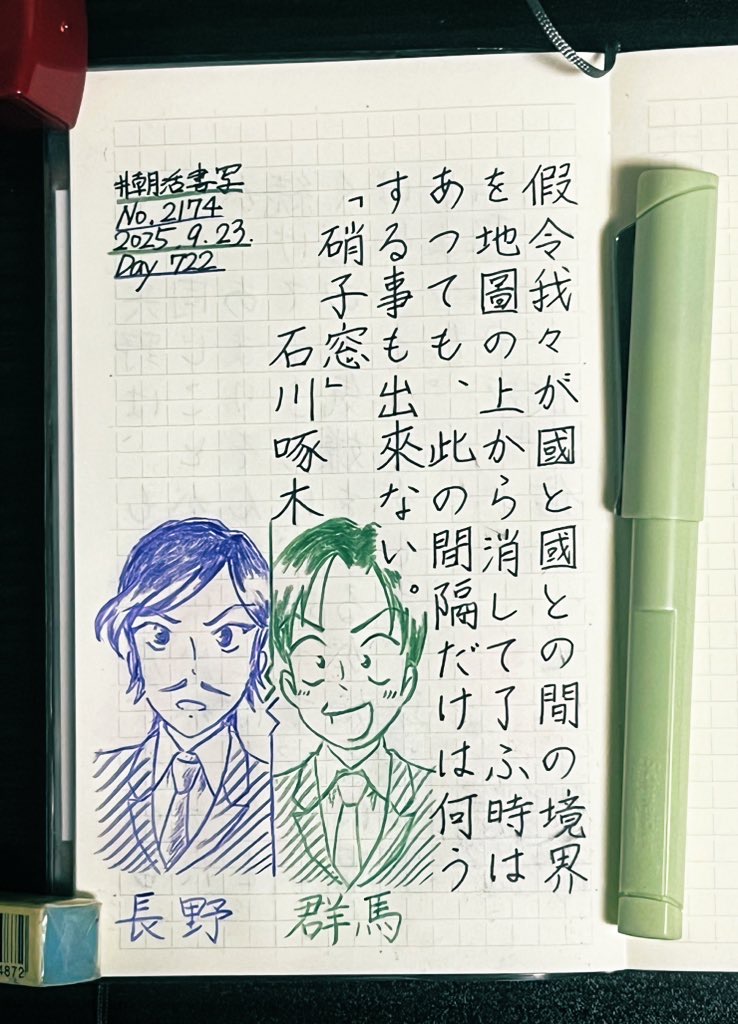 #朝活書写
No. 2174
2025. 9. 23.
Day 722
假令我々が國と國との間の境界
を地圖の上から消して了ふ時は
あつても、此の間隔だけは何う
する事も出來ない。
「硝子窓」
石川啄木
長野
群馬
4872